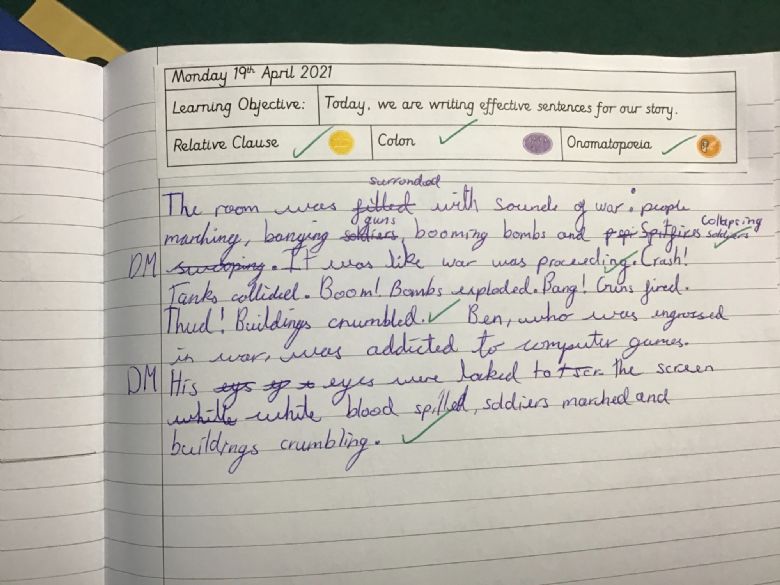 Monday 19th April 2021
Learning Objective: Today, we are writing effective sentences for our story.
Relative Clause Colon Onomatopoeia
surronded
The room was filled with sounds of war: people
guns collapsing
marching, banging soldiers, booming bombs and Spitfires soldiers
DM swooping. It was like war was proceeding. Crash!
Tanks collided. Boom! Bombs exploded. Bang! Guns fired.
Thud! Buildings crumbled. Ben, who was engrossed
in war, was addicted to computer games.
DM His eys ey eyes were locked to the screen
while white blood spilled, soldiers marched and
buildings crumbling.